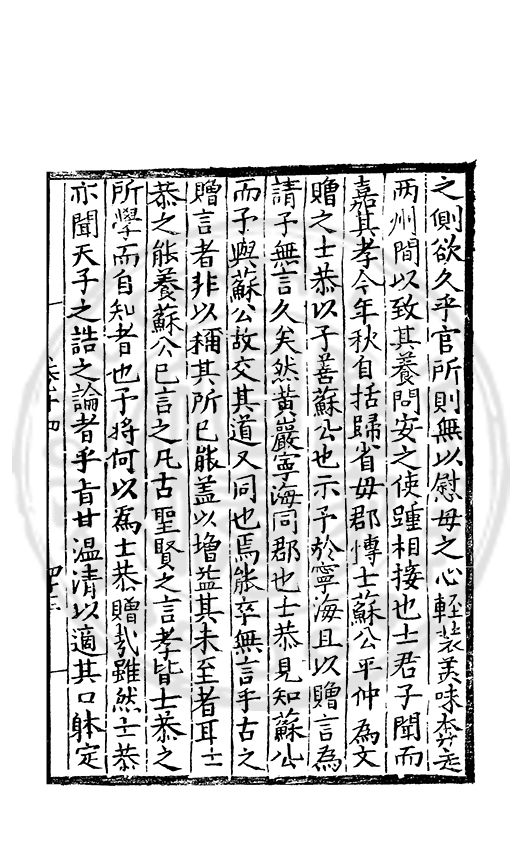 之側欲久乎官所則無以慰母之心輕裝美味奔走
两州間以致其養問安之使踵相接也士君子聞而
嘉其孝今年秋自括歸省毋郡愽士蘇公平仲為文
贈之士恭以予善蘇公也示予於寧海且以贈言為
請予無言久矣然黄巖寧海同郡也士恭見知蘇公
而予與蘇公故交其道又同也焉能卒無言乎古之
贈言者非以稱其所已能盖以增益其未至者耳士
恭之能養蘇公已言之凡古聖賢之言孝皆士恭之
所學而自知者也予将何以為士恭贈哉雖然士恭
亦聞天子之誥之論者乎旨甘温清以適其口躰定
卷十四